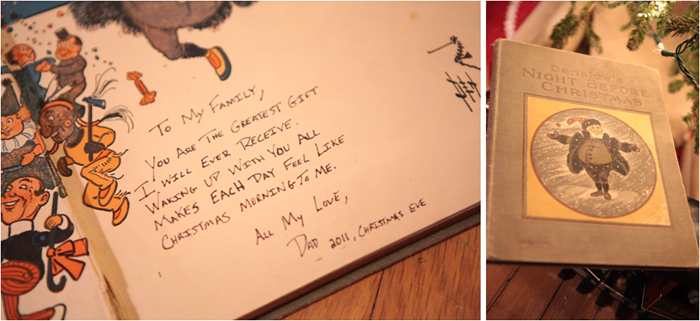 To My Family,
You Are The Greatest Gift
I Will Ever Receive.
Waking Up With You All
Makes Each Day Feel Like
Christmas Morning To Me.
All My Love,
Dad 2011, Christmas Eve
Denslow's
Night Before
Christmas